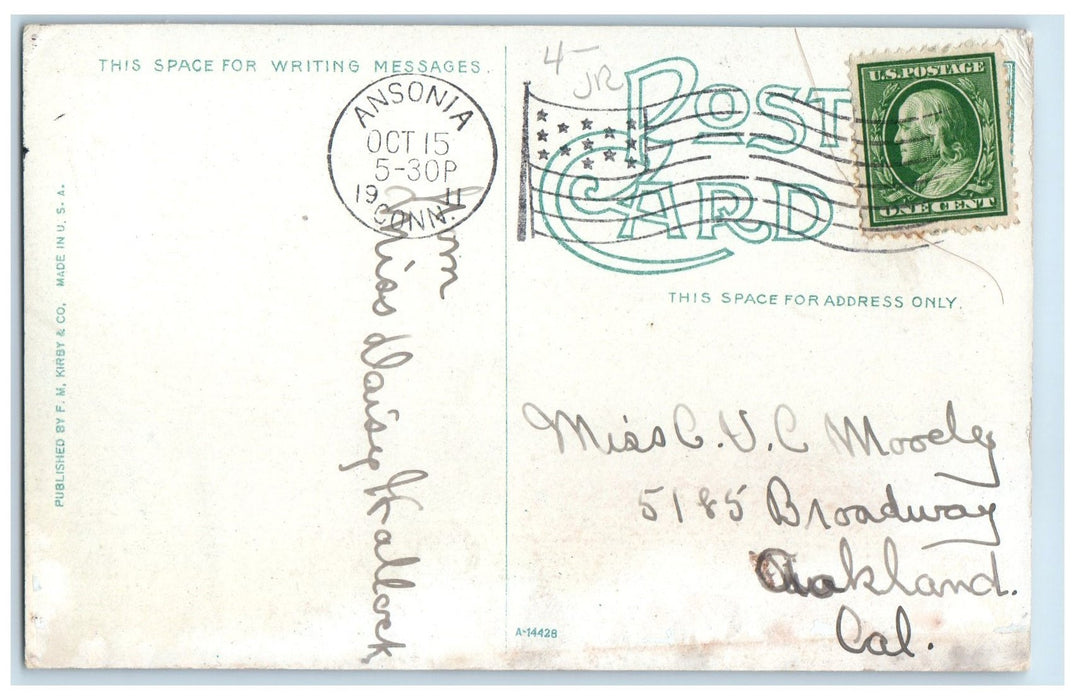 THIS SPACE FOR WRITING MESSAGES.
ANSONIA
OCT 15
5-30P
19 11
CONN.
4-
JR
POST CARD
U.S. POSTAGE
ONE CENT
THIS SPACE FOR ADDRESS ONLY.
PUBLISHED BY F. M. KIRBY & CO. MADE IN U. S. A.
From
Miss Daisy Hallock
Miss C. V. C Moocley
5185 Broadway
Oakland.
Cal.
A-14428